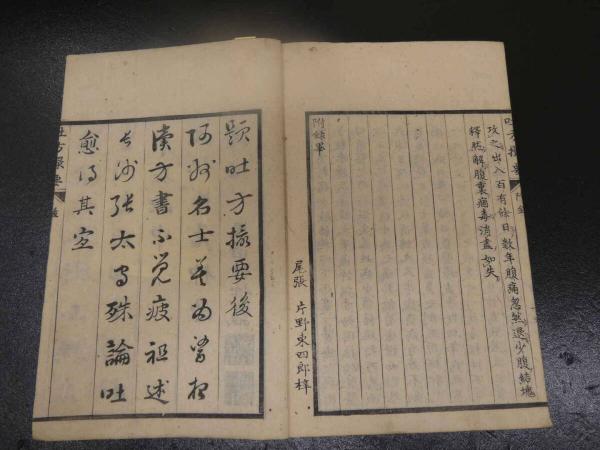 吐方撮要
附錄
攻之出入百有餘日數年腹痛忽然退少腹結塊
釋然解腹裏病毒消盡如失
附錄畢
尾張 片野東四郎梓
題吐方撮要後
阿州名士
讀方書不覺疲祖述
長沙張太守殊論吐
愈得其宜
吐方撮要